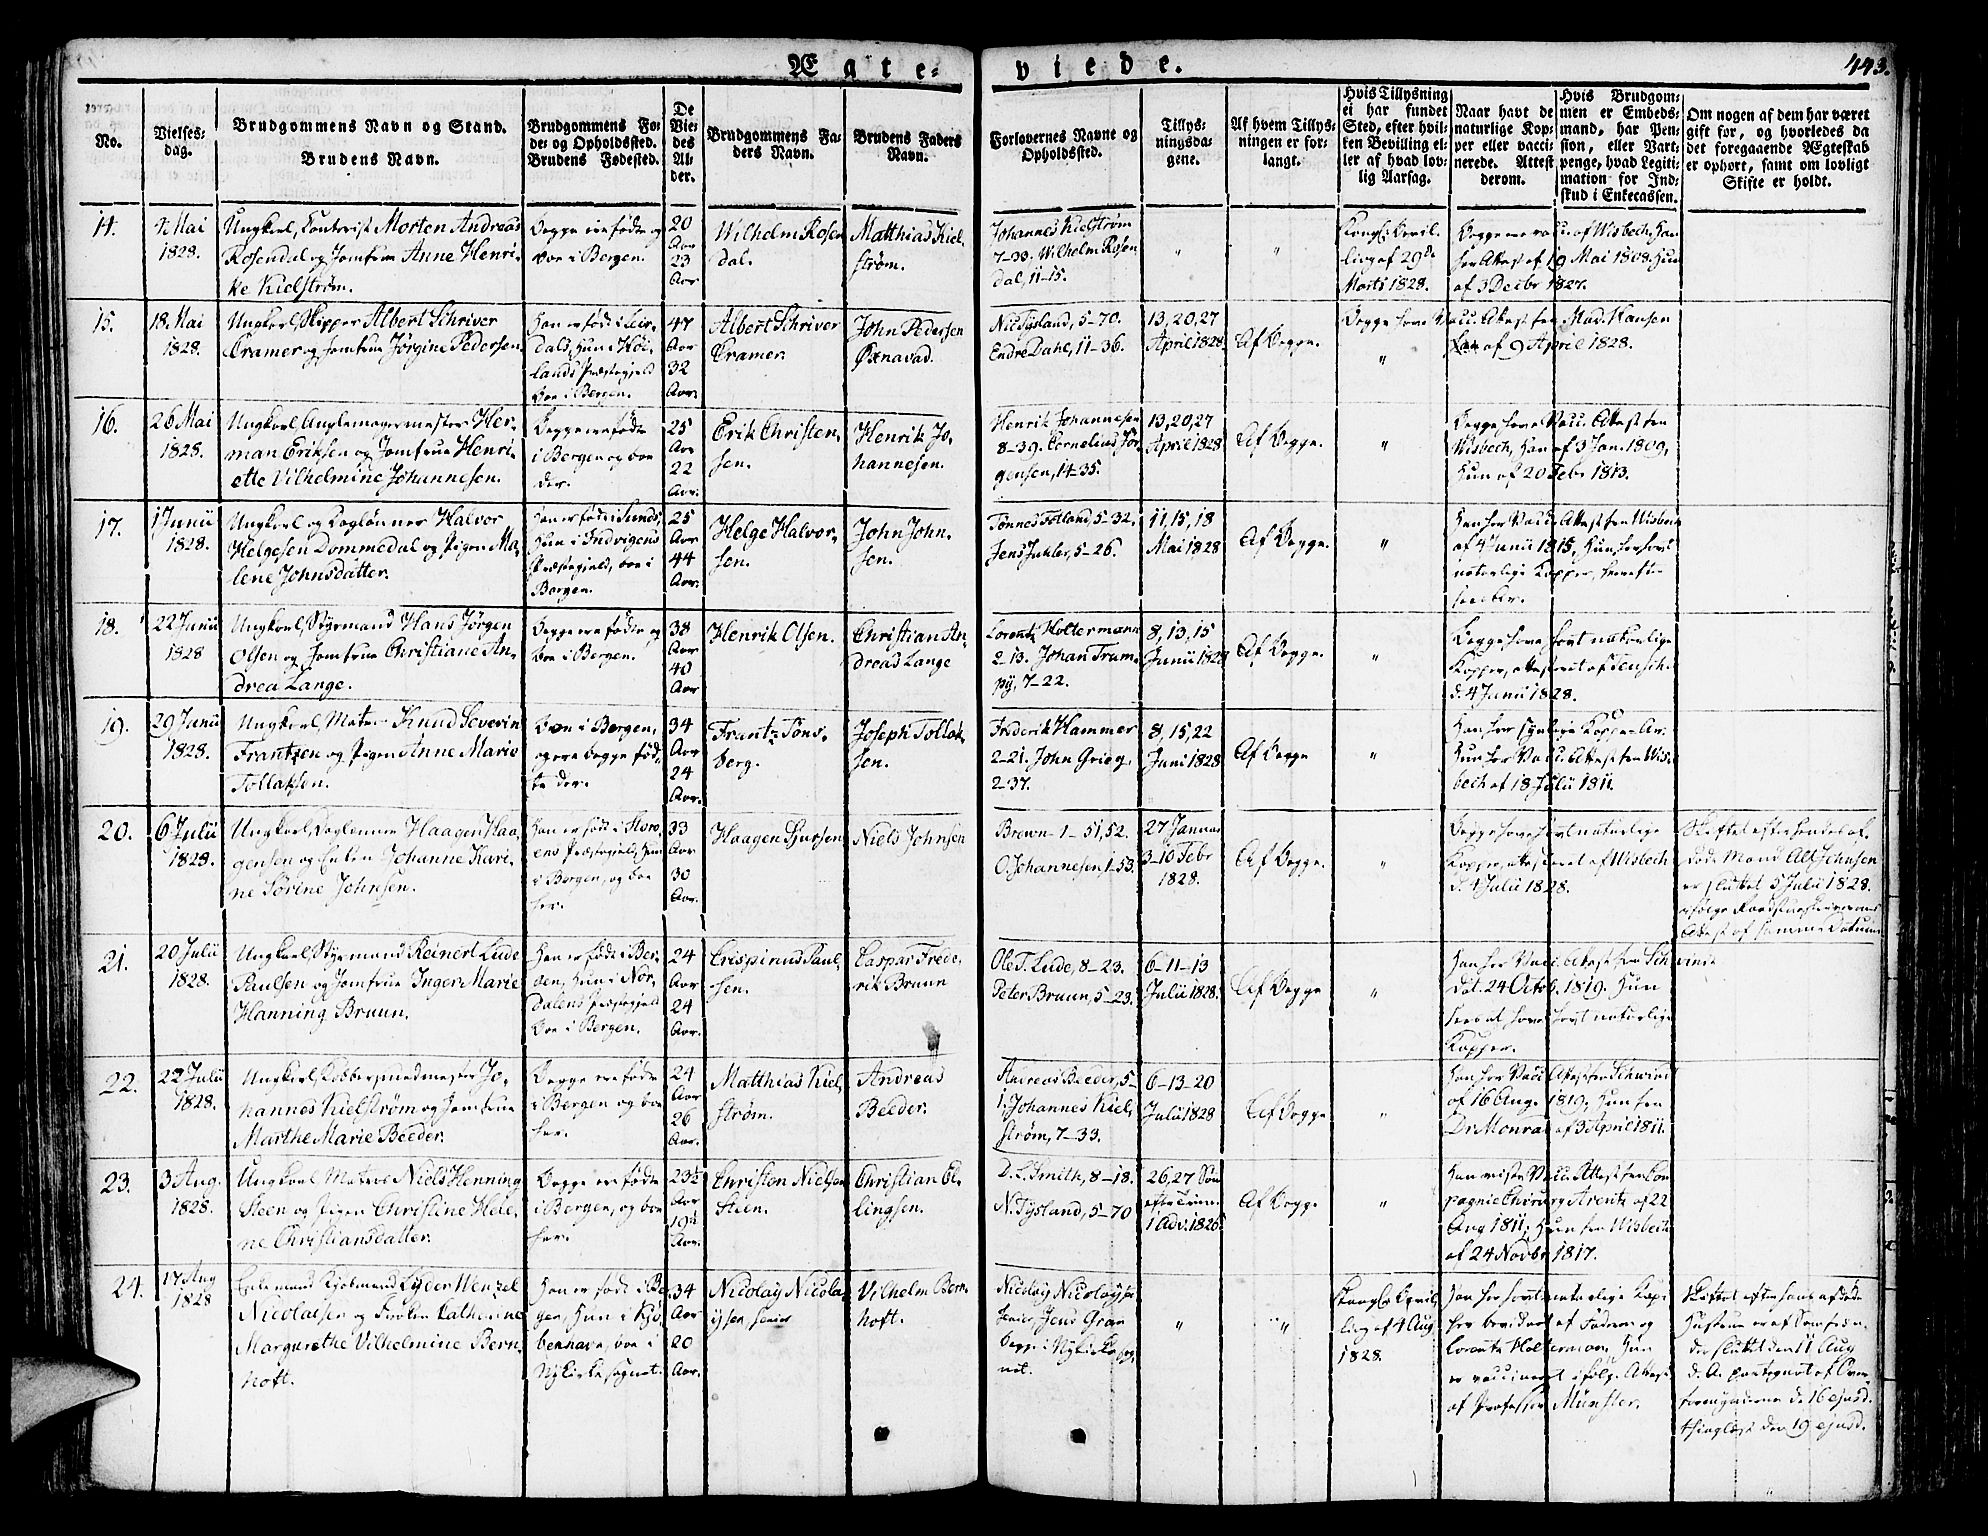 Ægte-
viede.
443.
No.
Vielses-
dag.
Brudgommens Navn og Stand.
Brudens Navn.
Brudgommens Fø-
de- og Opholdssted.
Brudens Fødested.
De
Vie-
des
Al-
der.
Brudgommens Fa-
ders Navn.
Brudens Faders
Navn.
Forlovernes Navne og
Opholdssted.
Tillys-
ningsda-
gene.
Af hvem Tillys-
ningen er for-
langt.
Hvis Tillysning
ei har fundet
Sted, efter hvil-
ken Bevilling el-
ler af hvad lov-
lig Aarsag.
Naar havt de
naturlige Kop-
per eller vacci-
nerede. Attest
derom.
Hvis Brudgom-
men er Embeds-
mand, har Pen-
sion, eller Vart-
penge, hvad Legiti-
mation for Ind-
skud i Enkecassen.
Om nogen af dem har været
gift før, og hvorledes da
det foregaaende Ægteskab
er ophørt, samt om lovligt
Skifte er holdt.
14.
7 Mai
1828.
Ungkarl, Contorist Morten Andreas
Rosendal og Jomfrue Anne Henri-
ke Kielstrøm.
Begge ere fødte og
boe i Bergen.
20
Aar
23
Aar
Wilhelm Rosen
dal.
Matthias Kiel-
strøm.
Johannes Kielstrøm
7-33. Wilhelm Rosen
dal, 11-15.
"
"
Kongel. Bevil-
ling af 29de
Marts 1828.
Begge ere vacc. af Wisbech, han
har Attest af 19 Mai 1808. Hun
af 3 Decbr 1827.
15.
18. Mai
1828.
Ungkarl, Skipper Albert Schriver
Cramer og Jomfrue Jørgine Pedersen.
Han er fød i Leir-
dals, Hun i Høi-
lands Præstegjeld
boe i Bergen.
47
Aar
32
Aar.
Albert Schriver
Cramer.
John Pedersen
Øxnavad.
Nic Tysland, 5-70.
Endre Dahl, 11-36.
13, 20, 27
April 1828.
Af Begge.
"
Begge have Vacc. Attest fra Mad. Hansen
af 9 April 1828.
16.
26 Mai
1828.
Ungkarl, Her-
man Eriksen og Jomfrue Henri-
ette Vilhelmine Johannesen.
Begge ere fødte
i Bergen og boe
der.
25
Aar
22
Aar.
Erik Christen-
sen.
Henrik Jo-
hannesen.
Henrik Johannesen
8-39. Cornelius Jør-
gensen, 14-35.
13, 20, 27
April 1828
Af Begge.
"
Begge have Vacc. Attest fra
Wisbech, Han af 3 Jan. 1809,
Hun af 20 Febr 1813.
17.
1 Junii
1828.
Ungkarl og Daglønner Halvor
Helgesen Dommedal og Pigen Ma-
lene Johnsdatter.
Han er fød i Sunds,
Hun i Indvigens
Præstegjeld, boe i
Bergen.
25
Aar
44
Aar.
Helge Halvor-
sen.
John John-
sen.
Tønnes Totland, 5-32,
Jens Juhler, 5-26.
11, 15, 18
Mai 1828
Af Begge.
"
Han har Vacc. Attest fra Wisbech
af 4 Junii 1815, Hun har havt
naturlige Kopper,
18.
22 Junii
1828
Ungkarl, Styrmand Hans Jørgen
Olsen og Jomfrue Christiane An-
drea Lange.
Begge ere fødte og
boe i Bergen.
38
Aar
40
Aar
Henrik Olsen.
Christian An-
dreas Lange
Lorentz Holtermann
2-13. Johan Trum-
py, 7-22.
8, 13, 15
Junii 1828
Af Begge.
"
Begge have havt naturlige
Kopper, attesteret af
d. 4 Junii 1828.
19.
29 Junii
1828.
Ungkarl, Matr. Knud Severin
Frantzen og Pigen Anne Marie
Tollaksen.
Boe i Bergen,
og ere begge fød-
te der.
34
Aar
24
Aar.
Frantz Tøns-
berg.
Joseph Tollak-
sen.
Frederik Hammer
2-21. John Grieg,
2-37.
8, 15, 22
Juni 1828
Af Begge
"
Han har synlige Koppe-Ar.
Hun har Vacc. Attest fra Wis-
bech af 18 Julii 1811.
20.
6 Julii
1828.
Ungkarl, Dagløner Haagen Haa-
gensen og Enken Johanne Kari-
ne Sørine Johnsen.
Han er fød i
Præstegjeld, Hun
i Bergen, og boe
her.
33
Aar
30
Aar.
Haagen Sjursen
Niels Johnsen
Brown 1-51, 52.
O. Johannesen, 1-53.
27 Januar
3-10 Febr
1828.
Af Begge.
"
Begge have havt naturlige
Kopper, attesteret af Wisbech
d. 4 Julii 1828.
Skiftet efter hendes af-
døde Mand Alf Johnsen
er sluttet 5 Julii 1828.
ifølge
Attest af samme Datum
21.
20 Julii
1828.
Ungkarl, Styrmand Reinert Lude
Paulsen og Jomfrue Inger Marie
Hanning Bruun.
Han er fød i Ber-
gen, Hun i Nor-
dalens Præstegjeld
boe i Bergen.
24
Aar
24
Aar.
Crispinus Paul-
sen.
Caspar Frede-
rik Bruun
Ole T. Lude, 8-23.
Peter Bruun, 5-23.
6-11-13
Julii 1828.
Af Begge
"
Han har Vacc. Attest fra Schwindt
dat. 24 Octob. 1819. Hun
have havt naturlige
Kopper.
22.
22 Julii
1828.
Ungkarl, Kobbersmedmester Jo-
hannes Kielstrøm og Jomfrue
Marthe Marie Beeder.
Begge ere fødte
i Bergen og boe
her.
24
Aar
26
Aar.
Matthias Kiel-
strøm.
Andreas
Beeder.
Andreas Beeder, 5-
1. Johannes Kiel-
strøm, 7-33.
6-13-20
Julii 1828
Af Begge
"
Han har Vacc. Attest fra Schwindt
af 16 Aug. 1819, Hun fra
Dr. Monrad af 3 April 1811.
23.
3 Aug.
1828.
Ungkarl Matros Niels Henning
Steen og Pigen Christine Hele-
ne Christiansdatter.
Begge ere fødte
i Bergen, og boe
her.
23½
Aar
19½
Aar.
Christen Nielsen
Steen.
Christian El-
lingsen.
D. L. Smith, 8-18.
N. Tysland, 5-70
26, 27 Søn
efter Trin.
1 Adv. 1826
Af Begge
"
Han viste Vacc. Attest fra Com-
pagnie Chirurg Arentz af 22
Aug 1811, Hun fra Wisbech
af 24 Novbr 1817.
24.
17 Aug
1828
Enkemand Kjøbmand Lyder Wenzel
Nicolaisen og Frøken Catherine
Margarethe Vilhelmine Bern-
hoft.
Han er fød i Ber-
gen, Hun i Kjø-
benhavn, boe i
Nykirke sognet.
34
Aar
20
Aar.
Nicolay Nicola-
ysen senior
Vilhelm Bern-
hoft.
Nicolay Nicolaysen
senior, Jens Gran
begge i Nykirkesog-
net.
"
"
Kongel. Bevil-
ling af 4 Aug.
1828.
Han har havt naturlige Kop-
per bevidnet af Faderen og
Lorentz Holtermann, Hun
er vaccineret ifølge Attest
af Professor Münster.
Skiftet efter hans afdøde
Hustrue er af Samfrænder
sluttet den 11 Aug
d. A.
d. 16 ejusd.
thinglæst den 19 ejusd.